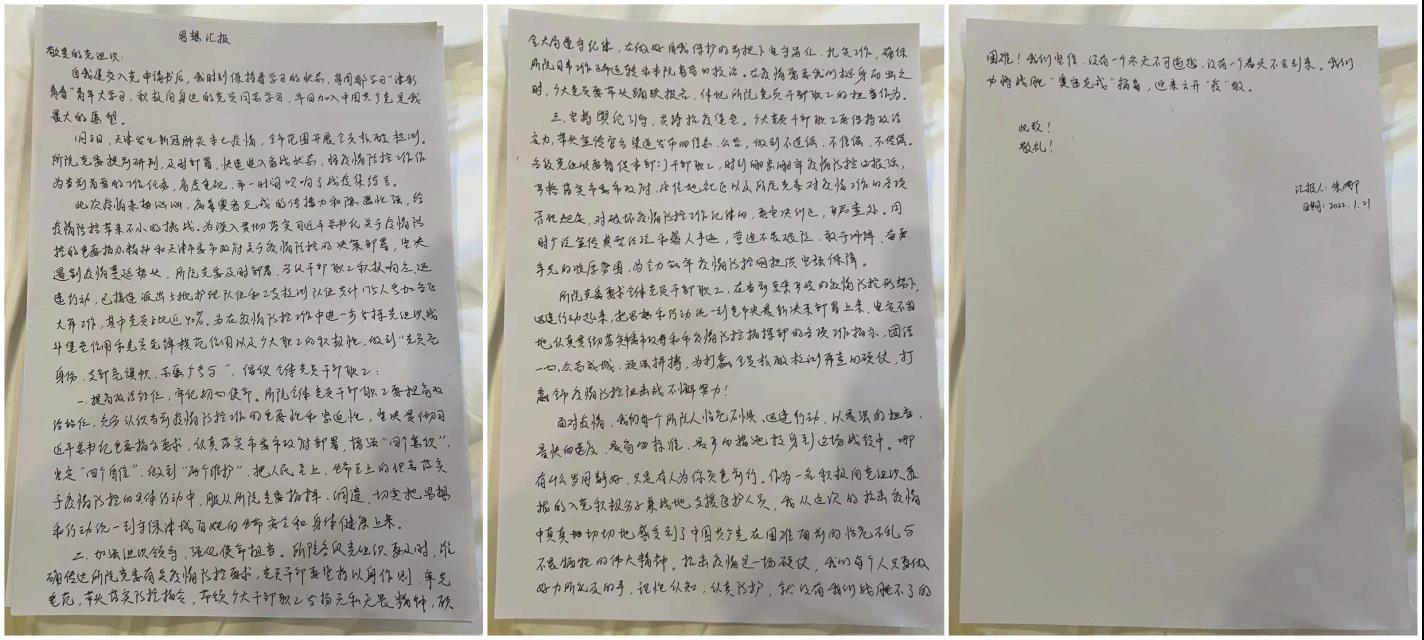 思想汇报
敬爱的党组织:
自我递交入党申请书后，我时刻保持着学习的状态，每周都学习“津彩
青春”青年大学习，积极向身边的党员同志学习，早日加入中国共产党是我
最大的愿望。
1月8日，天津发生新冠肺炎本土疫情，全市范围开展全员核酸检测。
所院党委提前研判，及时部署，快速进入备战状态，将疫情防控工作作
为当前首要的工作任务，高度重视，第一时间吹响了战疫集结号。
此次疫情来势汹汹，病毒奥密克戎的传播力和隐匿性强，给
疫情防控带来不小的挑战，为深入贯彻落实习近平总书记关于疫情防
控的重要指示精神和天津市委市政府关于疫情防控的决策部署，坚决
遏制疫情蔓延势头，所院党委及时部署，各级干部职工积极响应，迅
速行动，已接连派出5批护理队伍和2支检测队伍共计175人参加各区
大筛工作，其中党员占比近40%。为在疫情防控工作中进一步发挥党组织战
斗堡垒作用和党员先锋模范作用以及广大职工的积极性，做到“党员亮
身份、支部亮旗帜、”，倡议全体党员干部职工:
一、提高政治站位，牢记初心使命。所院全体党员干部职工要提高政
治站位，充分认识当前疫情防控工作的重要性和紧迫性，坚决贯彻习
近平总书记重要指示要求，认真落实市委市政府部署，增强“四个意识”、
坚定“四个自信”、做到“两个维护”，把人民至上、生命至上的任务落实
于疫情防控的具体行动中，服从所院党委指挥、调遣，切实把思想
和行动统一到守护津城百姓的生命安全和身体健康上来。
二、加强组织领导，强化使命担当。所院各级党组织要及时、准
确传达所院党委有关疫情防控要求，党员干部要坚持以身作则、率先
垂范，带头落实防控指令，带领广大干部职工发扬无私无畏精神，顾
全大局遵守纪律，在做好自我保护的前提下坚守岗位、扎实工作，确保
所院日常工作正常运转和本院患者的救治。在疫情需要我们挺身而出之
时，广大党员要带头踊跃报名，体现所院党员干部职工的担当作为。
三、坚持舆论引导，共铸抗疫堡垒。广大党员干部职工要保持政治
定力，带头宣传官方渠道发布的信息、公告，做到不造谣、不信谣、不传谣。
各级党组织要督促本部门干部职工，时刻绷紧绷牢疫情防控这根弦，
严格落实市委市政府、居住地社区以及所院党委对疫情工作的各项
管理规定，对破坏疫情防控工作纪律的，要坚决制止、严肃查处。同
时广泛宣传典型经验和感人事迹，营造不畏艰险、敢于冲锋、奋勇
争先的浓厚氛围，为全力筑牢疫情防控网提供坚强保障。
所院党委要求全体党员干部职工，在当前复杂多变的疫情防控形势下，
迅速行动起来，把思想和行动统一到党中央最新决策部署上来，坚定不移
地认真贯彻落实市委市政府和市疫情防控指挥部的各项工作指示，团结
一心，众志成城，顽强拼搏，为打赢全员核酸检测筛查的硬仗，打
赢全市疫情防控阻击战不懈努力!
面对疫情，我们每个所院人临危不惧、迅速行动，以最强的担当、
最快的速度、最高的标准、最严的措施投身到这场战役中。哪
有什么岁月静好，只是有人为你负重前行。作为一名积极向党组织靠
拢的入党积极分子兼战地支援医护人员，我从这次的抗击疫情
中真真切切地感受到了中国共产党在困难面前的临危不乱与
不畏牺牲的伟大精神。抗击疫情是一场硬仗，我们每个人只要做
好力所能及的事，理性认知，认真防护，就没有我们战胜不了的
困难!我们坚信，没有一个冬天不可逾越，没有一个春天不会到来。我们
力将战胜“奥密克戎”病毒，迎来云开“疫”散。
此致!
敬礼!
汇报人:朱
日期:2022.1.21